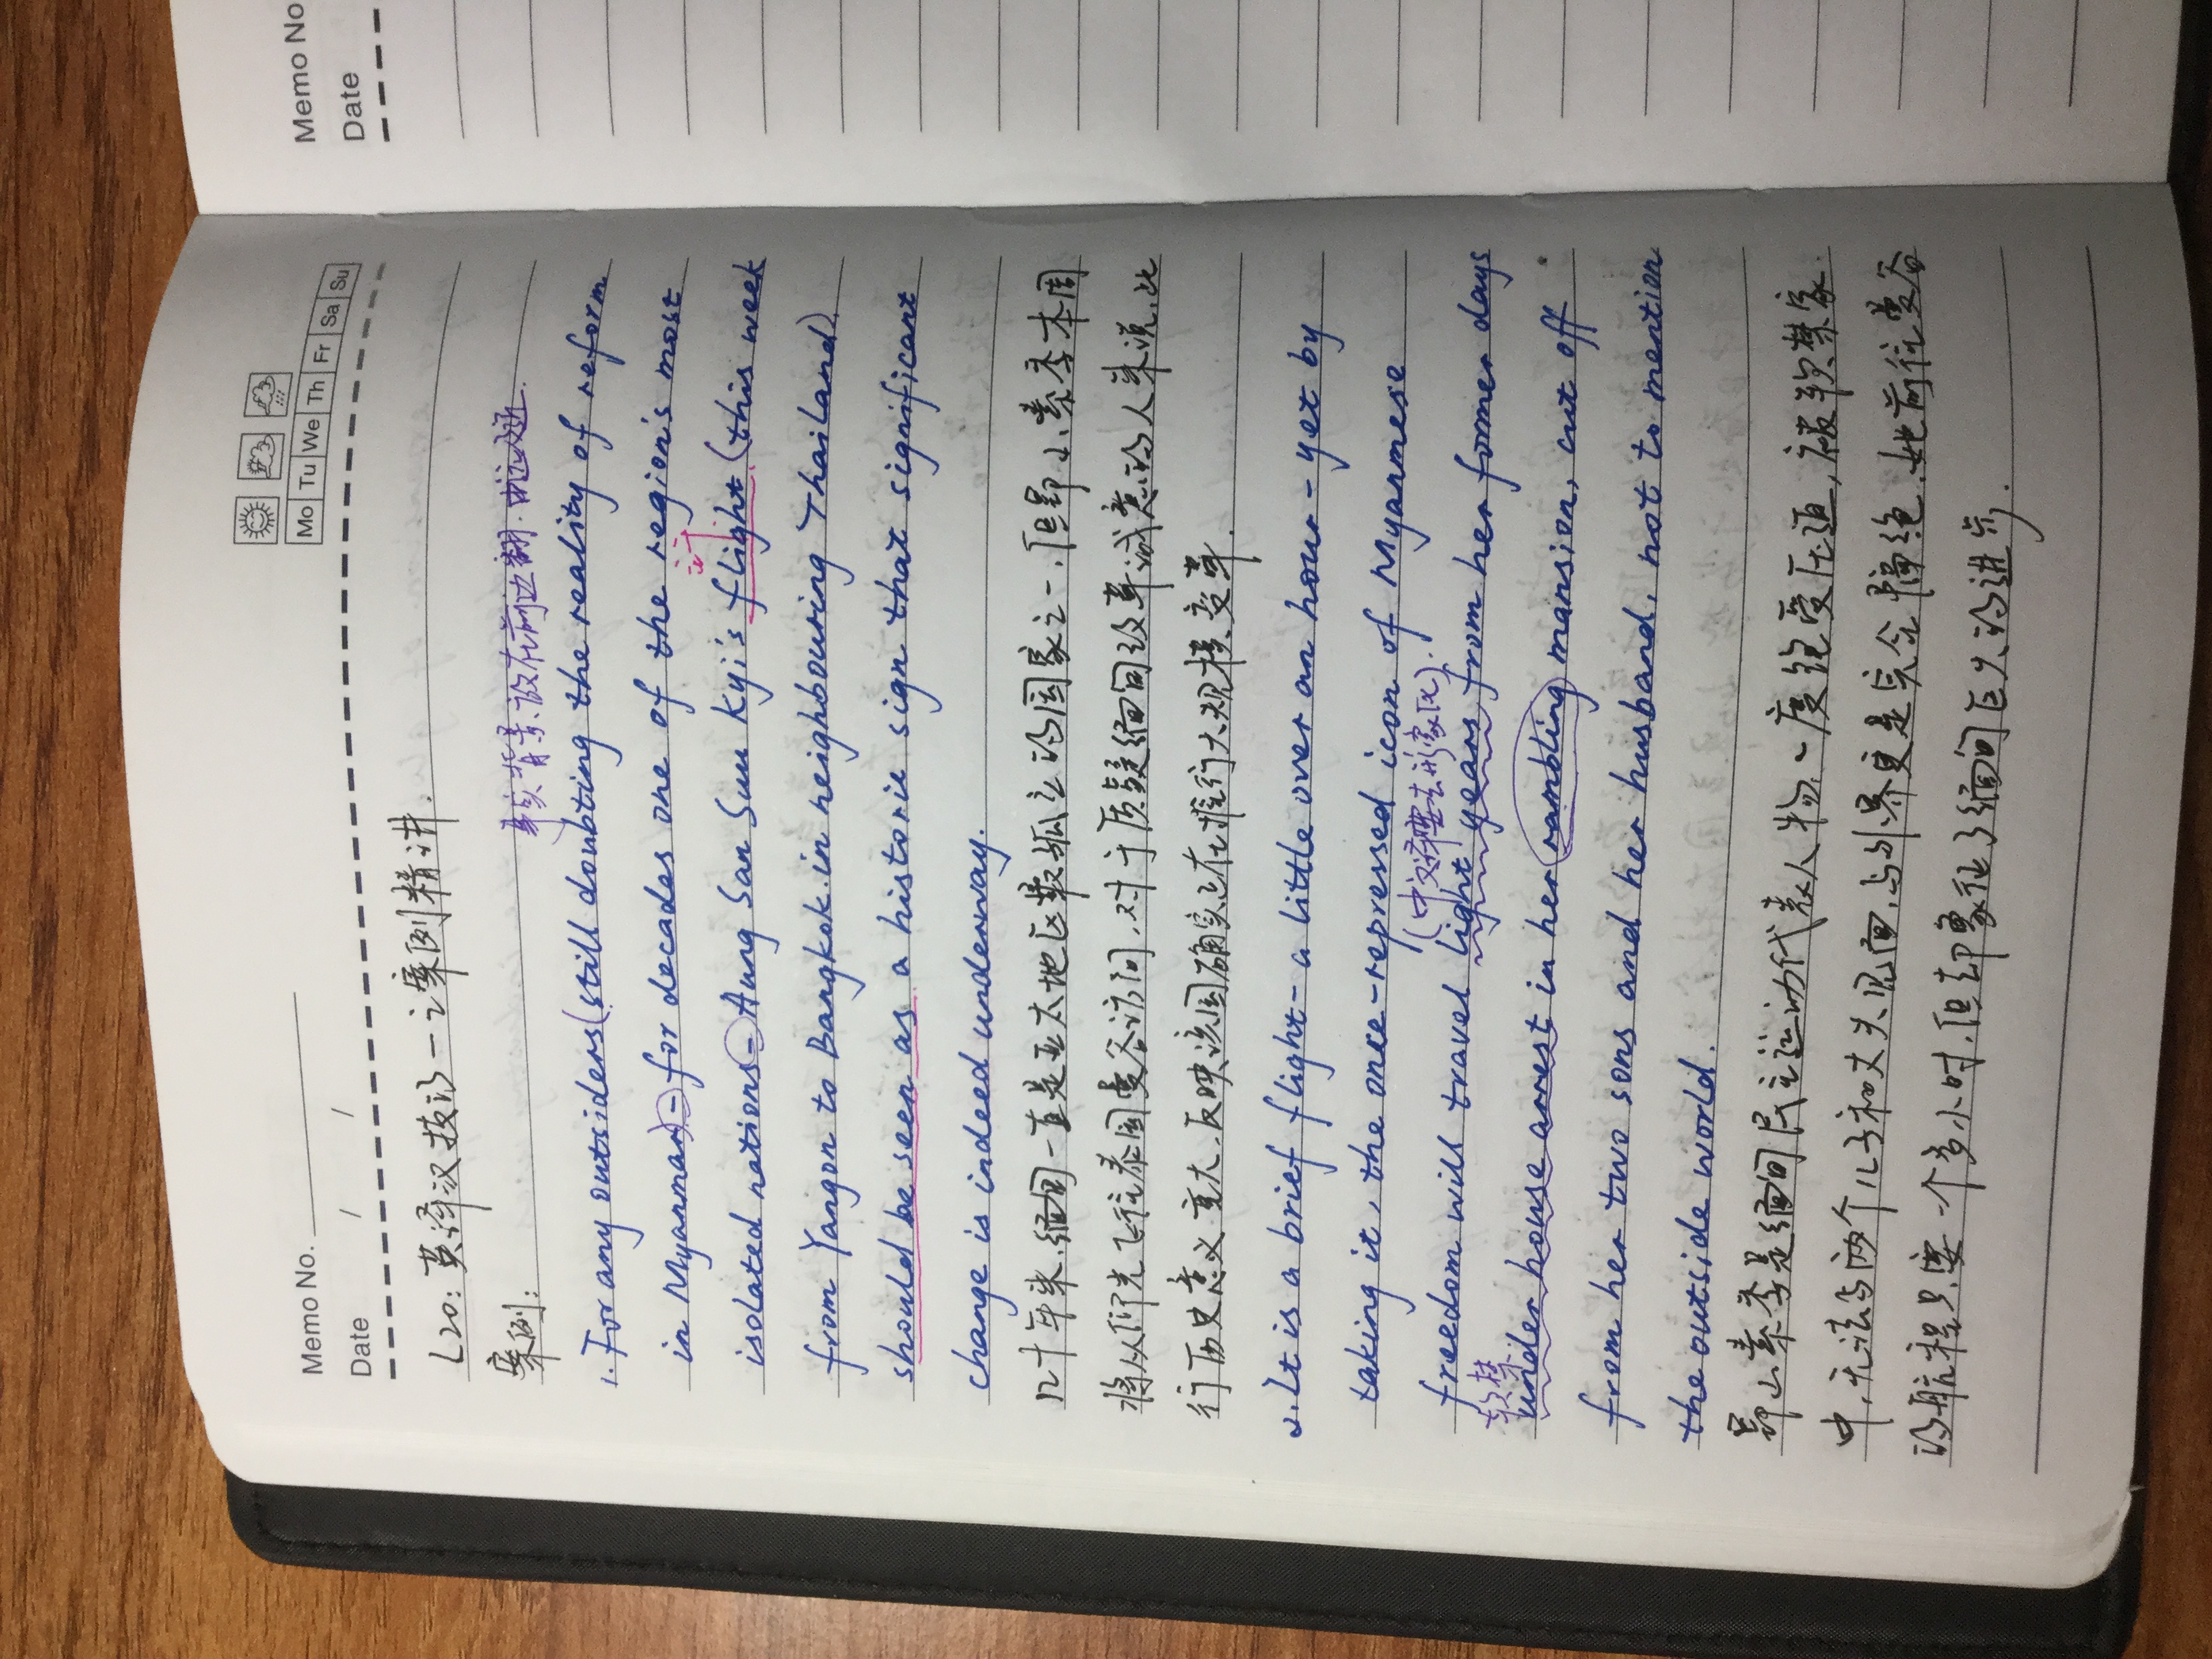 Memo No
Date
Memo No.
Mo Tu We Th Fr Sa Su
Date / /
L20: 英译汉技巧一之案例精讲.
案例: 事实背景放在前边翻. 时近处.
1. For any outsiders (still doubting the reality of reform
in Myanmar) - for decades one of the region's most
isolated nations - Aung San Suu Kyi's flight (this week
访
from Yangon to Bangkok in neighbouring Thailand)
should be seen as a historic sign that significant
change is indeed underway.
几十年来, 缅甸一直是亚太地区最孤立的国家之一, 但昂山素季本周
将从仰光飞往泰国曼谷访问, 对于质疑缅甸改革诚意的人来说, 此
行历史意义重大, 反映该国确实正在推行大规模变革.
2. It is a brief flight - a little over an hour - yet by
taking it, the once-repressed icon of Myanmese
(中文需要去形象化).
freedom will travel light years from her former days
软禁
under house arrest in her rambling mansion, cut off
from her two sons and her husband, not to mention
the outside world.
昂山素季是缅甸民主运动代表人物, 一度饱受压迫, 被软禁家
中, 无法与两个儿子和丈夫见面, 与外界更是完全隔绝. 她前往曼谷
的航程只要一个多小时, 但却象征了缅甸巨大的进步.